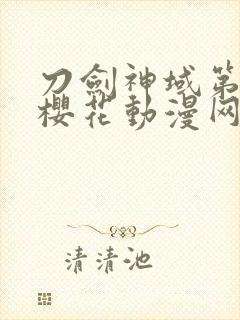 刀劍神域第
櫻花動漫网
清清池